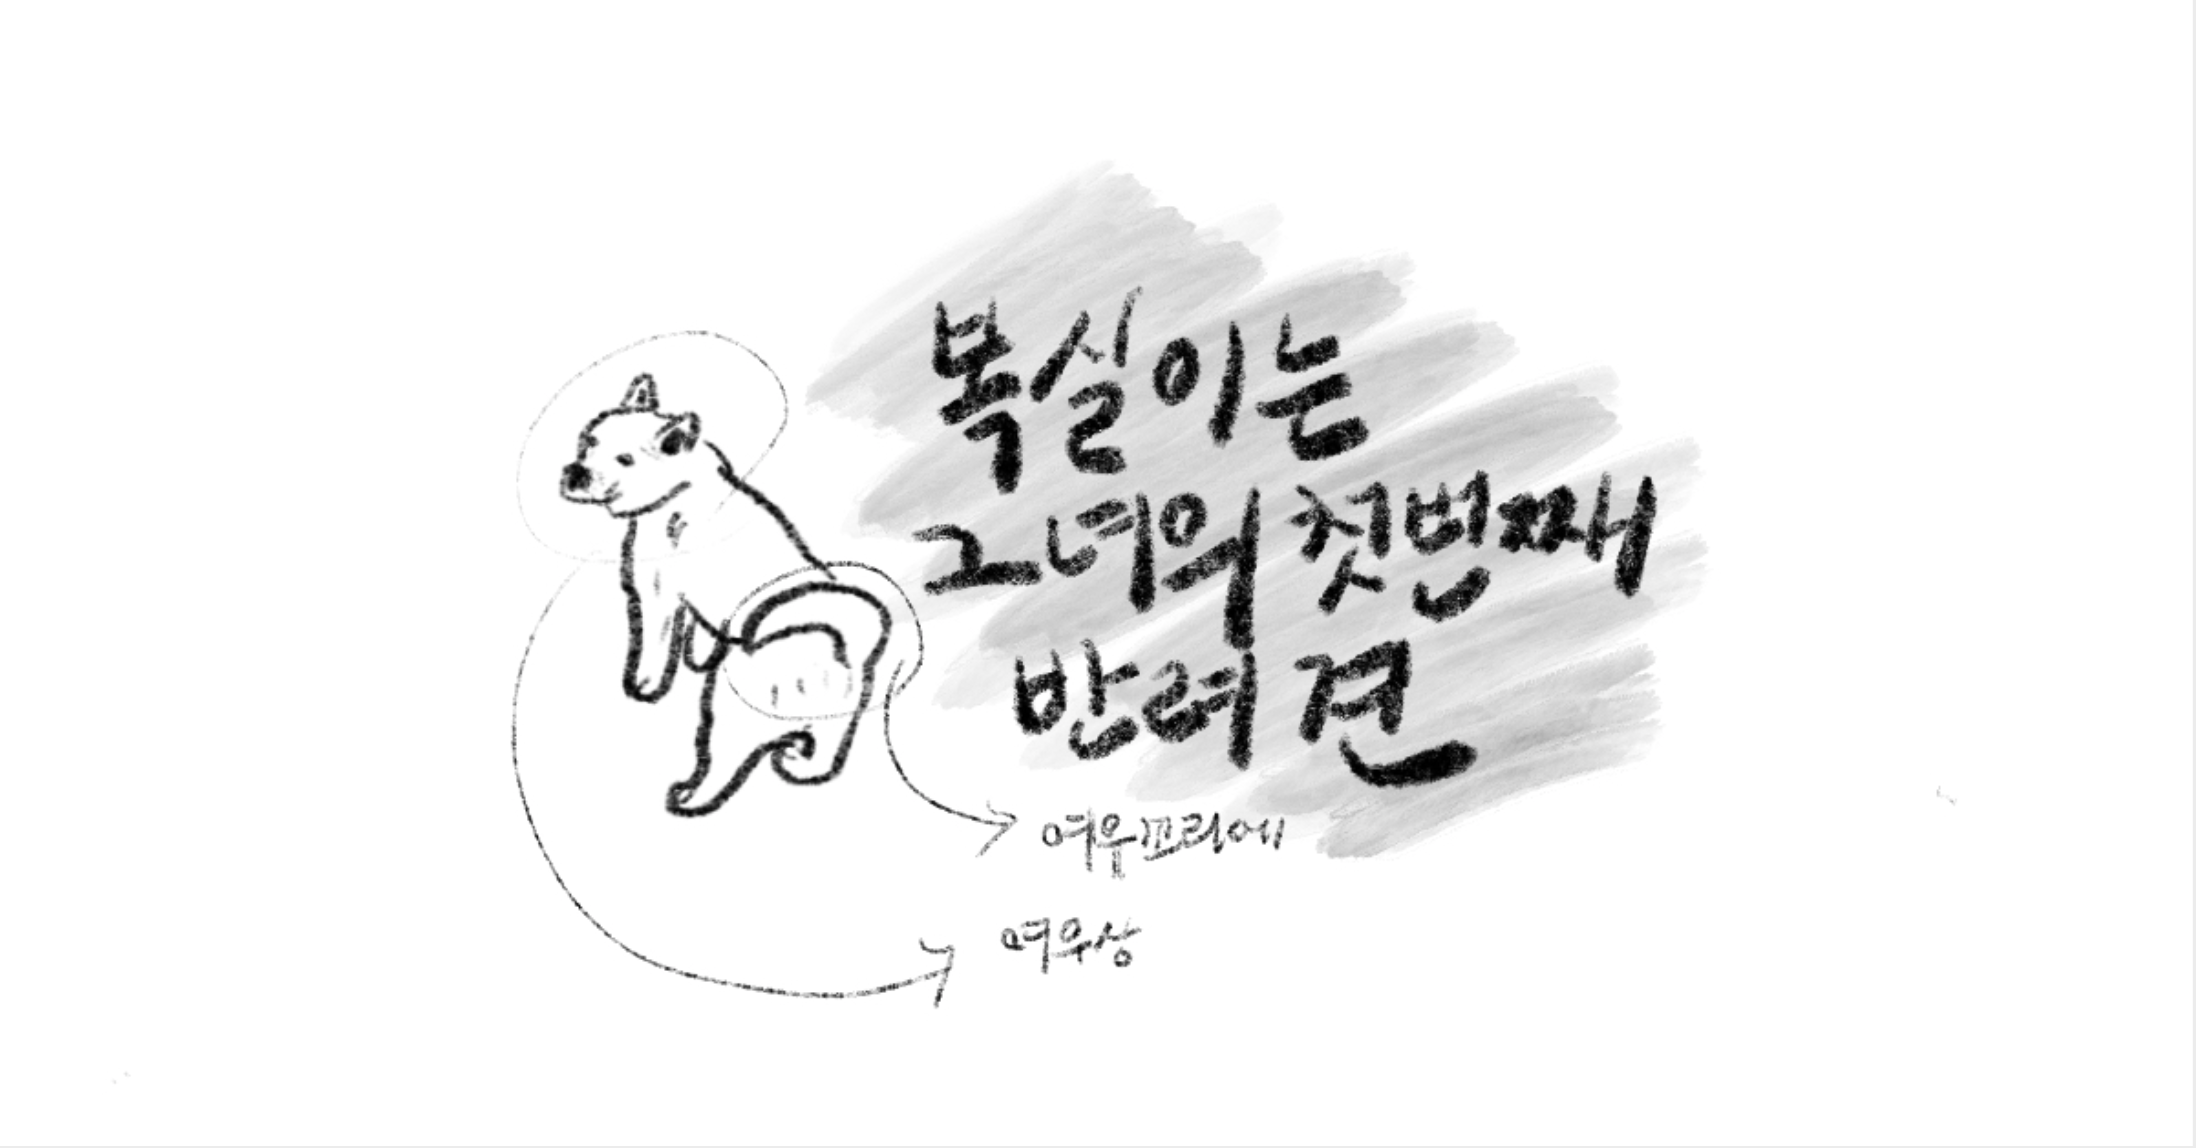 복실이는
그녀의 첫번째
반려견
여우꼬리에
여우상